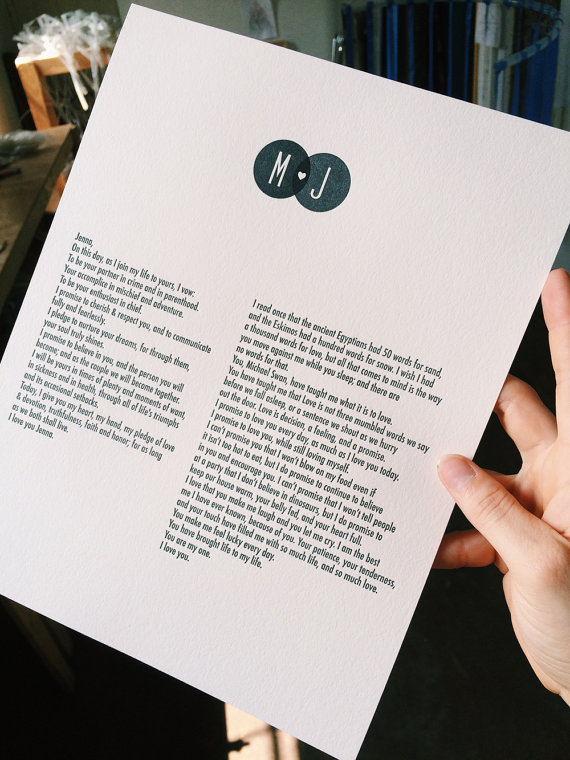 M J
Jenna,
On this day, as I join my life to yours, I vow:
To be your partner in crime and in parenthood.
Your accomplice in mischief and adventure.
To be your enthusiast in chief.
I promise to cherish & respect you, and to communicate
fully and fearlessly.
I pledge to nurture your dreams, for through them,
your soul truly shines.
I promise to believe in you, and the person you will
become; and as the couple we will become together.
I will be yours in times of plenty and moments of want,
in sickness and in health, through all of life's triumphs
and its occasional setbacks.
Today, I give you my heart, my hand, my pledge of love
& devotion, truthfulness, faith and honor, for as long
as we both shall live.
I love you Jenna.
I read once that the ancient Egyptians had 50 words for sand,
and the Eskimos had a hundred words for snow. I wish I had
a thousand words for love, but all that comes to mind is the way
you move against me while you sleep; and there are
no words for that.
You, Michael Swan, have taught me what it is to love.
You have taught me that Love is not three mumbled words we say
before we fall asleep, or a sentence we shout as we hurry
out the door. Love is decision, a feeling, and a promise.
I promise to love you every day, as much as I love you today.
I promise to love you, while still loving myself.
I can't promise you that I won't blow on my food even if
it isn't too hot to eat, but I do promise to continue to believe
in you and encourage you. I can't promise that I won't tell people
at a party that I don't believe in dinosaurs, but I do promise to
keep our house warm, your belly fed, and your heart full.
I love that you make me laugh and you let me cry. I am the best
me I have ever known, because of you. Your patience, your tenderness,
and your touch have filled me with so much life, and so much love.
You make me feel lucky every day.
You have brought life to my life.
You are my one.
I love you.